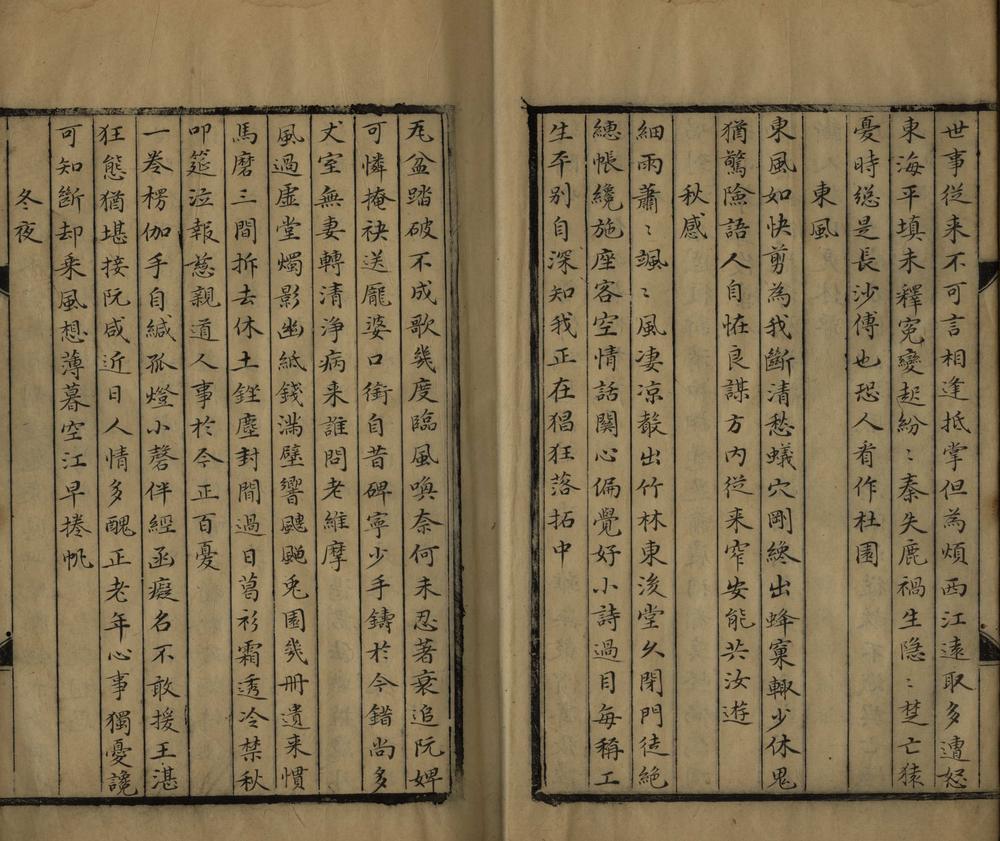 世事從来不可言相逢抵掌但為煩西江遠取多遭怒
東海平填未釋寃變起紛〻秦失鹿禍生隐〻楚亡猿
憂時緫是長沙傅也恐人看作杜園
東風
東風如快剪為我斷清愁蟻穴剛纔出蜂窠輙少休鬼
猶驚險語人自恠良謀方内従来窄安能共汝遊
秋感
細雨蕭〻颯〻風凄凉散出竹林東浚堂久閉門徒絶
繐帳纔施座客空情話闗心偏覺好小詩過目每稱工
生平别自深知我正在猖狂落拓中
瓦盆踏破不成歌幾度臨風喚奈何未忍著衰追阮婢
可憐掩袂送龎婆口銜自昔碑寧少手鑄於今錯尚多
丈室無妻轉清浄病来誰問老維摩
風過虚堂燭影幽紙錢满壁響飀飀兎園幾冊遺来慣
馬磨三間拆去休土銼塵封間過日葛衫霜透冷禁秋
叩筵泣報慈親道人事於今正百憂
一巻楞伽手自緘孤燈小磬伴經函癡名不敢援王湛
狂態猶堪接阮咸近日人情多醜正老年心事獨憂讒
可知斷却乗風想薄暮空江早捲帆
冬夜